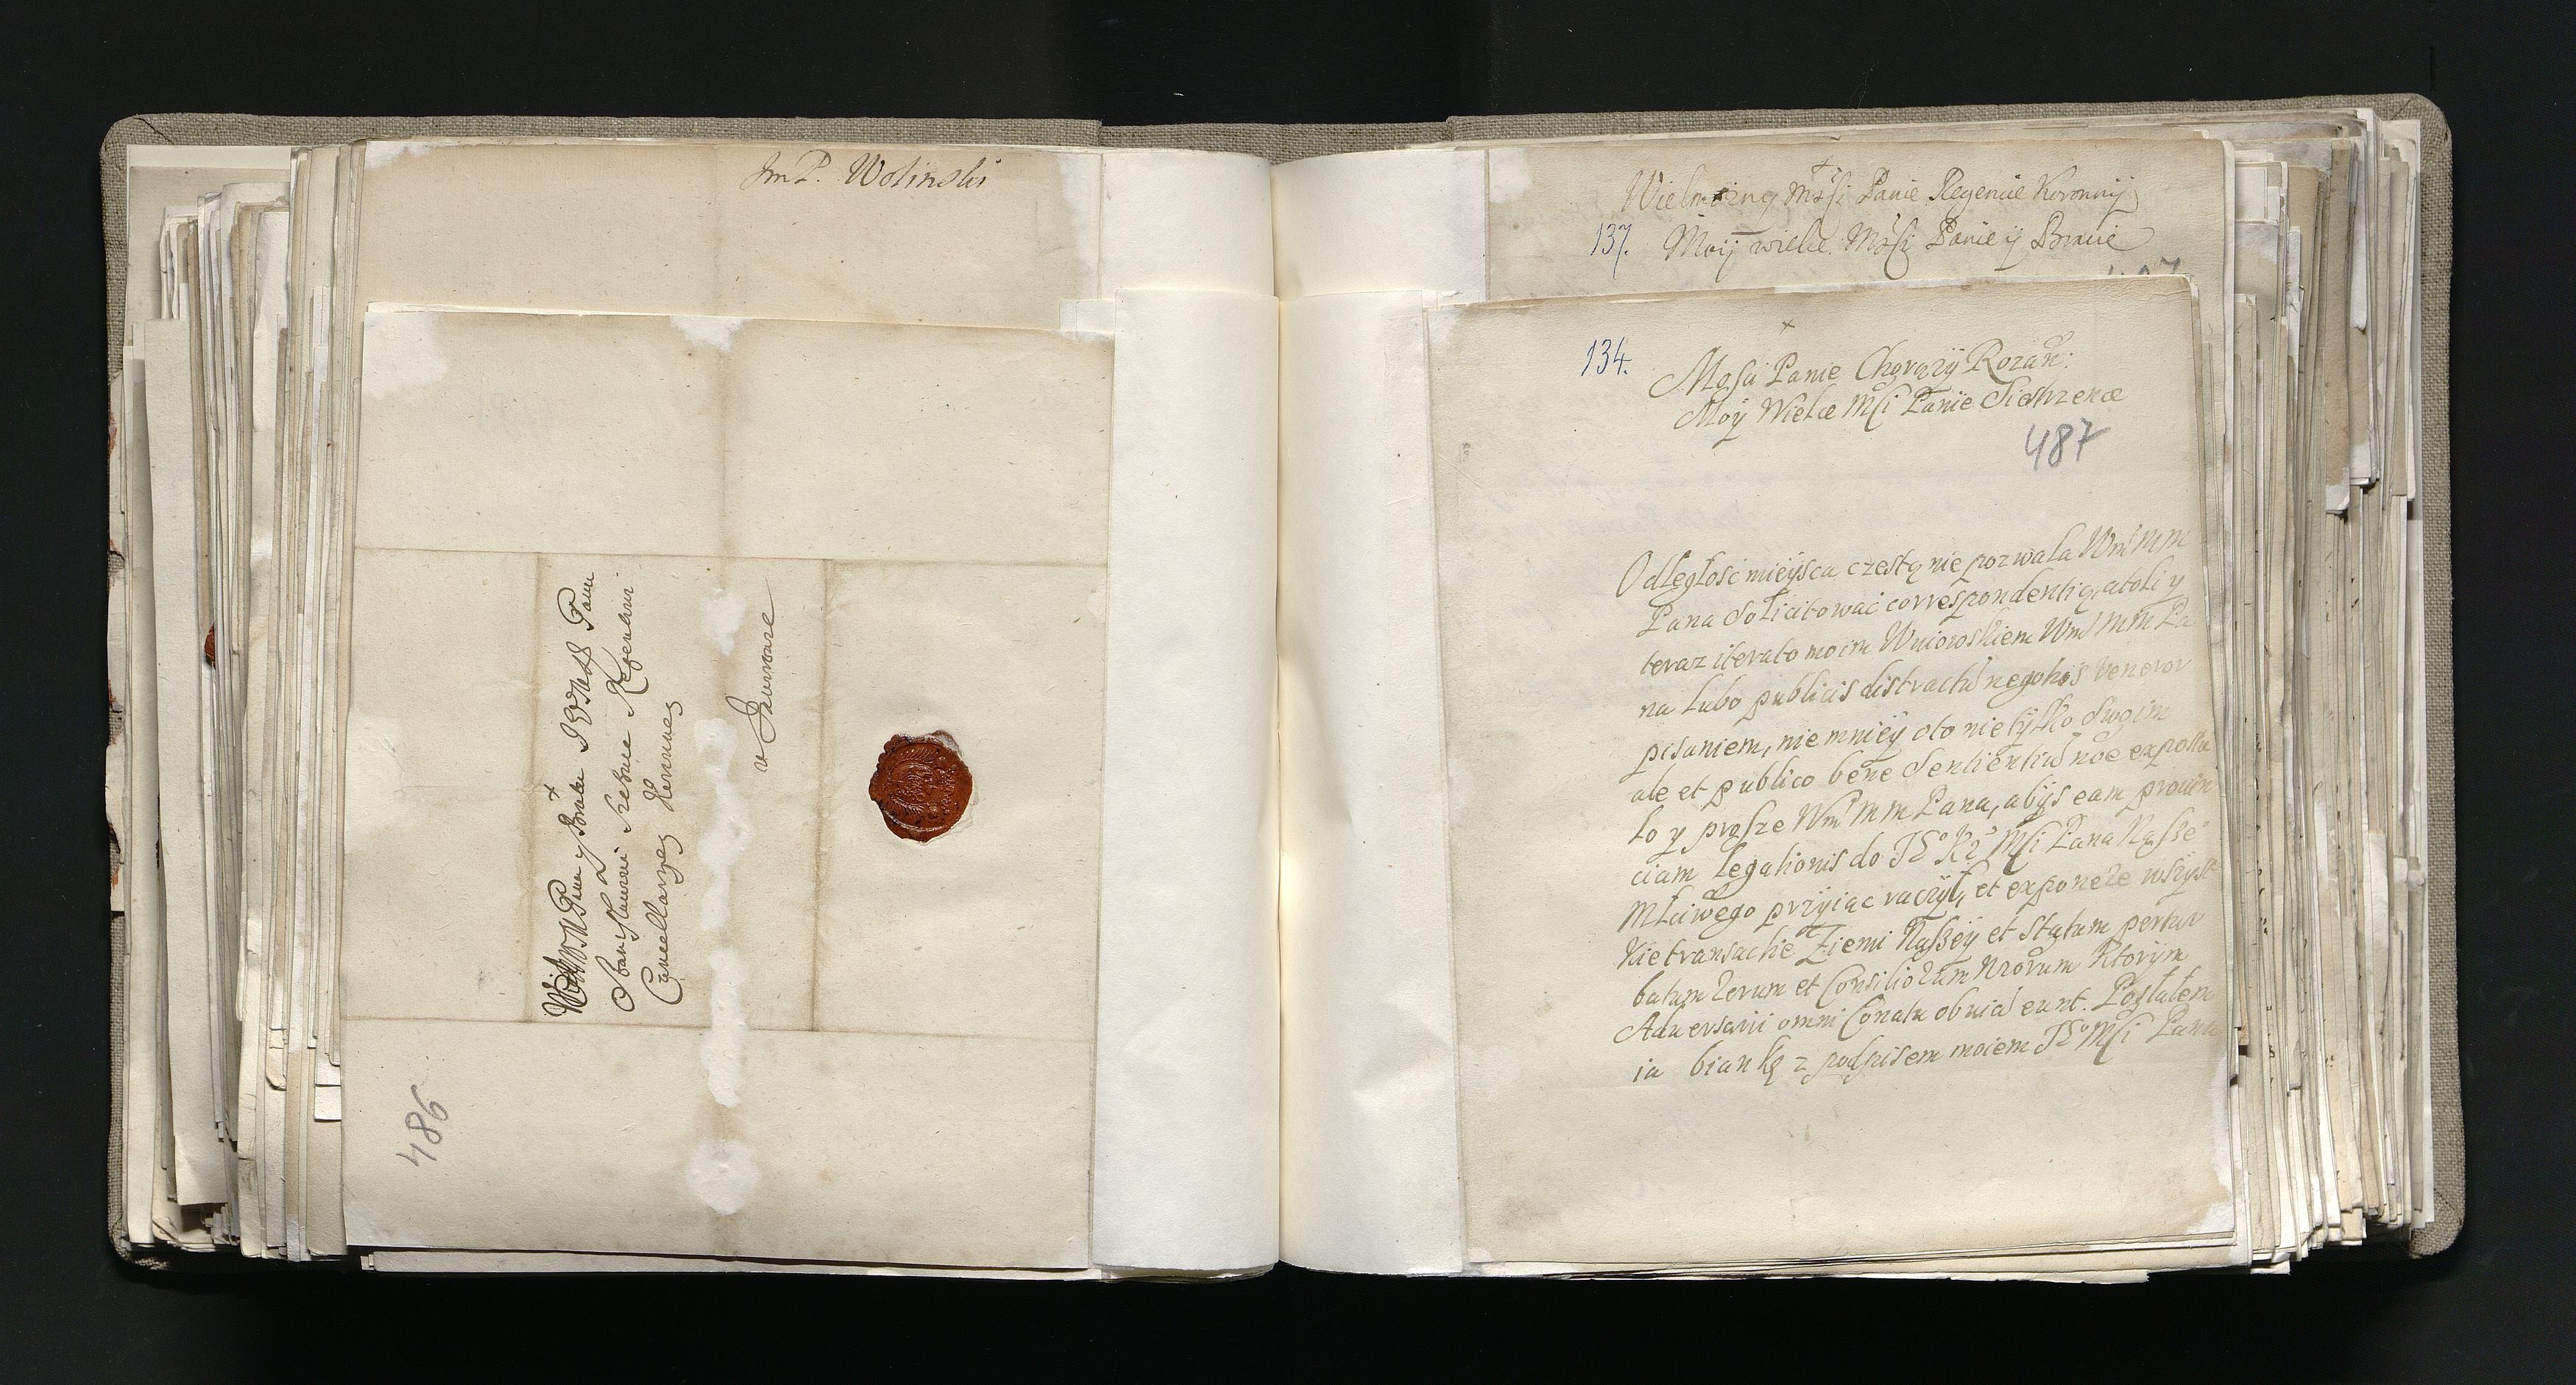 JmP. Wolinski
Pana y Brata
Stanisławowi Regentowi
Cancellaryey Koronney
w Jaworowie
486
Wielmożny Mżsci Panie Regencie Koronnij
137. Moij wielce Mżsci Panie ij Bracie
134. Mosci Panie Chorąży Rozań:
Moy Wielce Msci Panie Siestrzencze
487
Odległość mieysca częstą nie pozwala Wm M M
Pana solicitować correspondentią, atoli y
teraz iterato moim Wm M M Pa
na lubo publicis distractū negotiis veneror
pisaniem, nie mniey oto nie tylko swoim
ale et publico bene sentientiū noē expostu
lo y proszę Wm M M Pana, abyś eam provin
ciam legationis do Msci Pana Nasze
Mściwego przyiąc raczył, et exponere wszyst
kie transactie Ziemi Naszey et statum pertur
batum rerum et Consiliorum nrorum ktorym
Adversarii omni Conatu obviā eunt. Posłałem
ia biankę z podpisem moiem Msci Pana